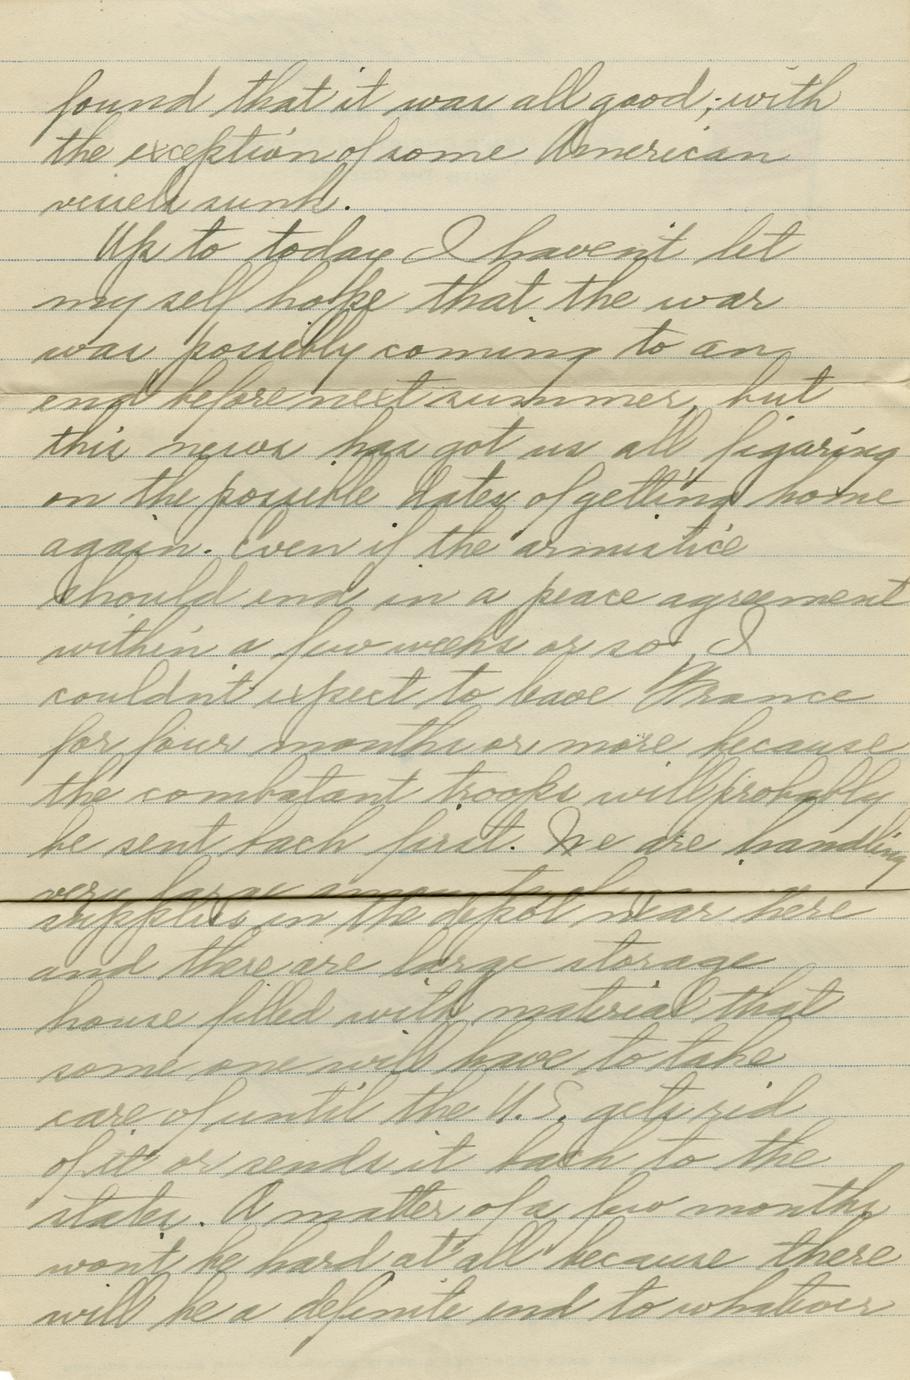 found that it was all good; with
the exception of some American
vessels sunk.
Up to today I haven't let
my self hope that the war
was possibly coming to an
end before next summer, but
this news has got us all figuring
on the possible dates of getting home
again. Even if the armistice
should end in a peace agreement
within a few weeks or so, I
couldn't expect to leave France
for four months or more because
the combatant troops will probably
be sent back first. We are handling
very large amounts of
supplies in the depot near here
and there are large storage
house filled with material that
some one will have to take
care of until the U.S. gets rid
of it or sends it back to the
states. A matter of a few months
wont be hard at all because there
will be a definite end to whatever